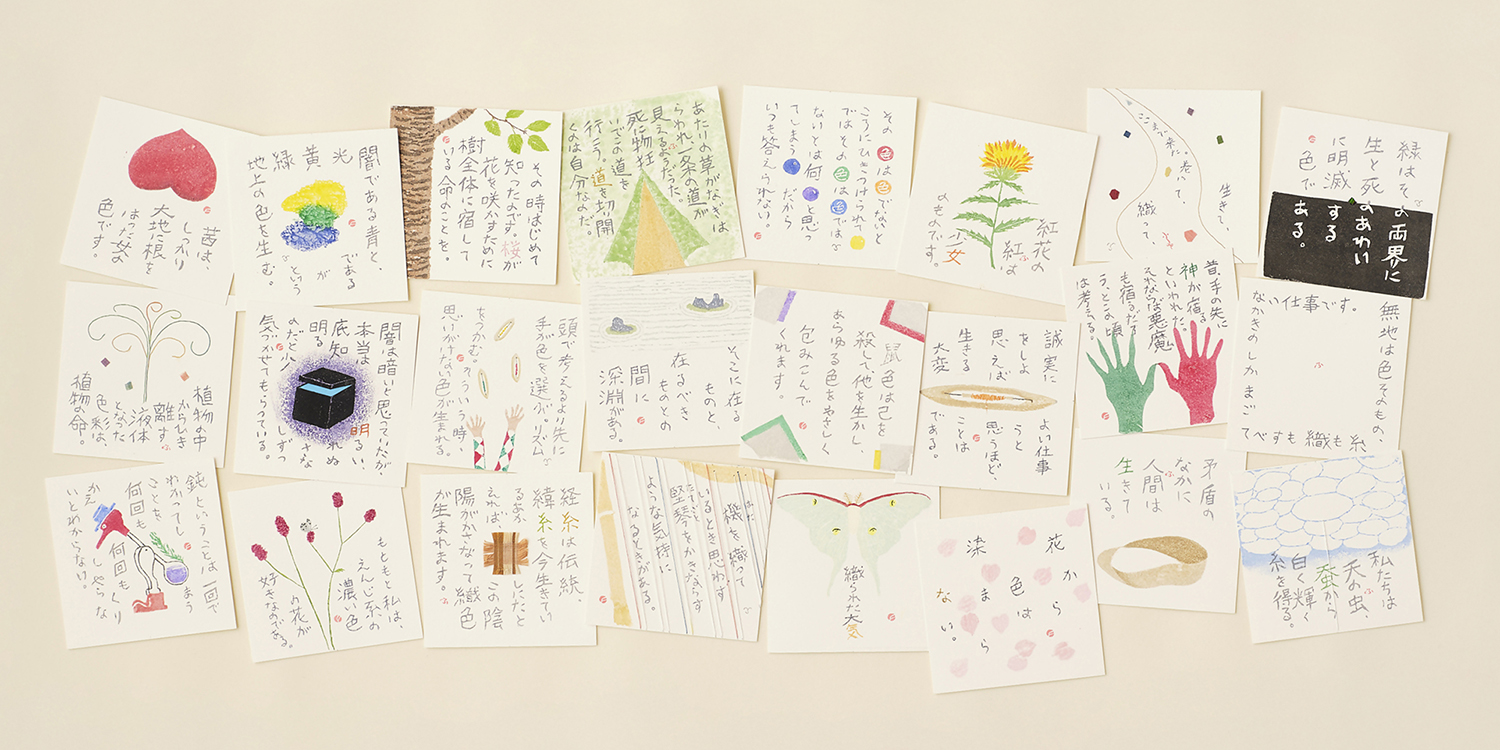 茜は、
しっかり
大地に根を
はった女の
色です。
闇である青と、
光である
黄が
緑という
地上の色を生む。
その時はじめて
知ったのです。桜が
花を咲かすために
樹全体に宿して
いる命のことを。
あたりの草がなぎは
らわれ、一条の道が
見えるようだった。
死に物狂
いでこの道を
行こう。道を切り開
くのは自分なのだ。
その色は色でないと
ころにひきつけられて
ではその色は色では
ないとは何と思っ
てしまうだから
いつも答えられない。
紅花の
紅は
少女
のものです。
生きて、
まで来た。老いて、
織って、
緑はその両界に
生と死のあわい
に明滅する
色である。
植物の中
からひき
離す。
液体
となった
色彩は、
植物の命。
闇は暗いと思っていたが、
本当は明るい、
底知れぬ
明るさな
のだと少しずつ
気づかせてもらっている。
頭で考えるより先に
手が色を選び、リズム
をつかむ。そういう時、
思いがけない色が生まれる。
そこに在る
ものと、
在るべき
ものとの
間に
深淵がある。
鼠色は己を
殺して、他を生かし、
あらゆる色をやさしく
包みこんで
くれます。
誠実によい仕事
をしようと
思えば思うほど、
生きることは
大変である。
昔、手の先に
神が宿る
といわれた、
それならば悪魔
も宿るだろ
う、とこの頃
は考える。
無地は色そのもの、
糸も織もすべて
ごまかしのきか
ない仕事です。
鈍ということは一回で
わかってしまう
ことを
何回も何回もくり
かえしやらな
いとわからない。
もともと私は、
えんじ系の
濃い色
の花が
好きなのである。
経糸は伝統、
緯糸を今生きてい
るあかしにたと
えれば、この陰
陽がかさなって織色
が生まれます。
はた
機を織って
いるとき思わず
たてごと
竪琴をかきならす
ような気持に
なるときがある。
織られた大気
花から
色は
染まら
ない。
矛盾の
なかに
人間は
生きて
いる。
私たちは
天の虫、
蚕から
白く輝く
糸を得る。